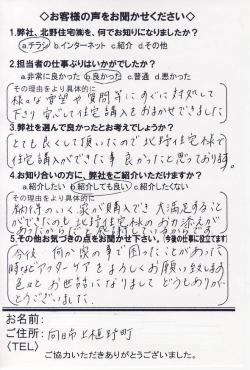 ◇お客様の声をお聞かせください◇
1.弊社、北野住宅㈱を、何でお知りになりましたか?
a.チラシ b.インターネット c.紹介 d.その他
2.担当者の仕事ぶりはいかがでしたか?
a.非常に良かった b.良かった c.普通 d.悪かった
その理由をより具体的に
様々な要望や質問等にすぐに対応して
下さり安心して住宅購入をおまかせできました
3.弊社を選んで良かったとお考えでしょうか?
とても良くして頂いたので北野住宅様で
住宅購入ができた事良かったと思っております。
4.お知り合いの方に、弊社をご紹介いただけますか?
a.紹介したい b.紹介しても良い c.紹介したくない
その理由をより具体的に
納得のいく家が購入でき大満足すること
ができたのも北野住宅様のお力添えが
あったからだと感謝しているからです
5.その他お気づきの点をお聞かせ下さい。(今後の仕事に役立てます)
今後何か家の事で困ったことがあった
時などアフターケアをよろしくお願い致します
色々とお世話になりましてどうもありが
とうございました。
お名前:
ご住所: 向日市上植野町
〈TEL〉
ご協力いただきありがとうございました。